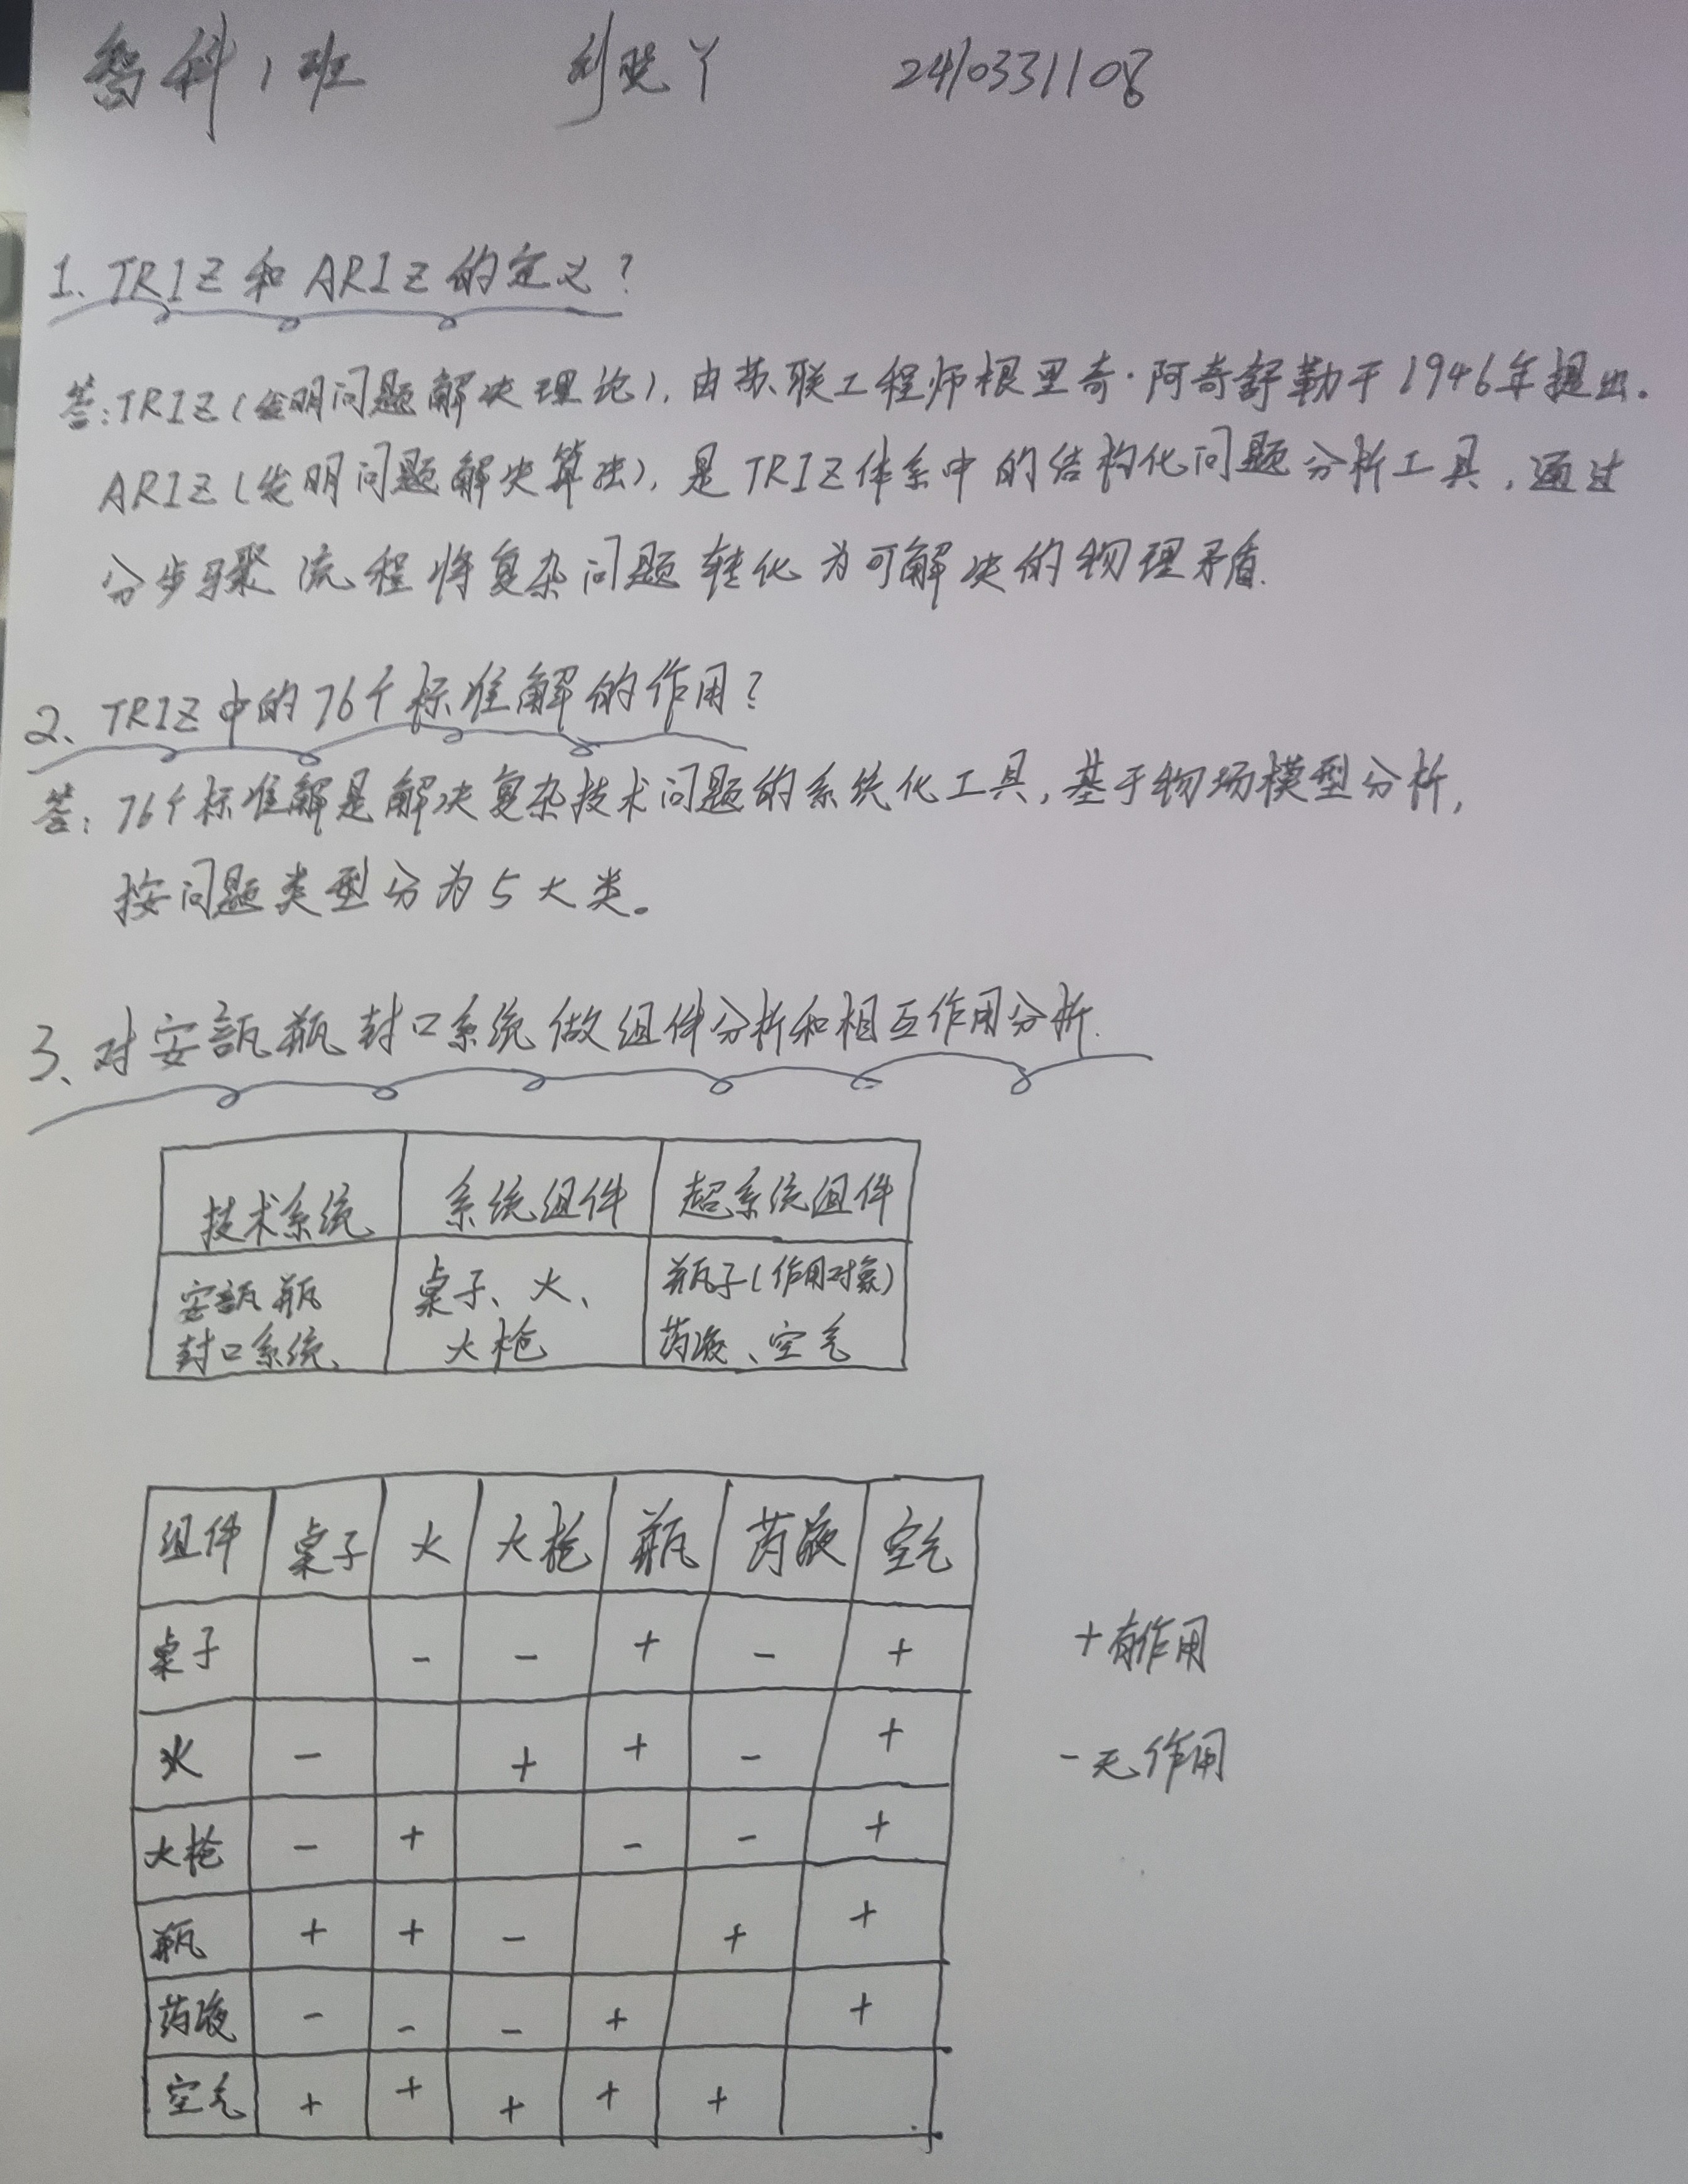 智科1班 刘晓丫 2410331108
1、TRIZ和ARIZ的定义?
答:TRIZ(发明问题解决理论),由苏联工程师根里奇·阿奇舒勒于1946年提出.
ARIZ(发明问题解决算法),是TRIZ体系中的结构化问题分析工具,通过
分步骤流程将复杂问题转化为可解决的物理矛盾.
2、TRIZ中的76个标准解的作用?
答:76个标准解是解决复杂技术问题的系统化工具,基于物场模型分析,
按问题类型分为5大类。
3、对安瓿瓶封口系统做组件分析和相互作用分析.
技术系统 系统组件 超系统组件
安瓿瓶 桌子、火、 瓶子(作用对象)
封口系统、 火枪 药液、空气
组件 桌子 火 火枪 瓶 药液 空气
桌子 - - + - +
火 - + + - +
火枪 - + - - +
瓶 + + - + +
药液 - - - + +
空气 + + + + +
+有作用
-无作用